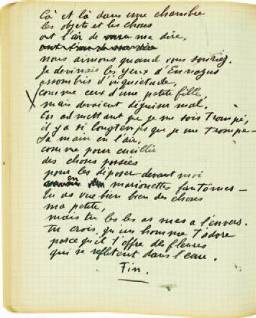 Çà et là dans une chambre
les objets et les choses
ont l'air de me dire,
nous aimons quand vous souriez.
Je devinais les yeux d'
assombris d'inquiétude,
comme ceux d'une petite fille,
mais devaient
En admettant que je me sois trompé,
il y a si longtemps que je me trompe -
La main en l'air,
comme pour cueillir
des choses posées
pour les déposer devant moi
en marionettes fantômes -
Tu as vu bien des choses
ma petite,
mais tu les as vues à l'envers.
Tu crois qu'un homme t'adore
parce qu'il t'offre des fleurs
qui se reflètent dans l'eau.
Fin.